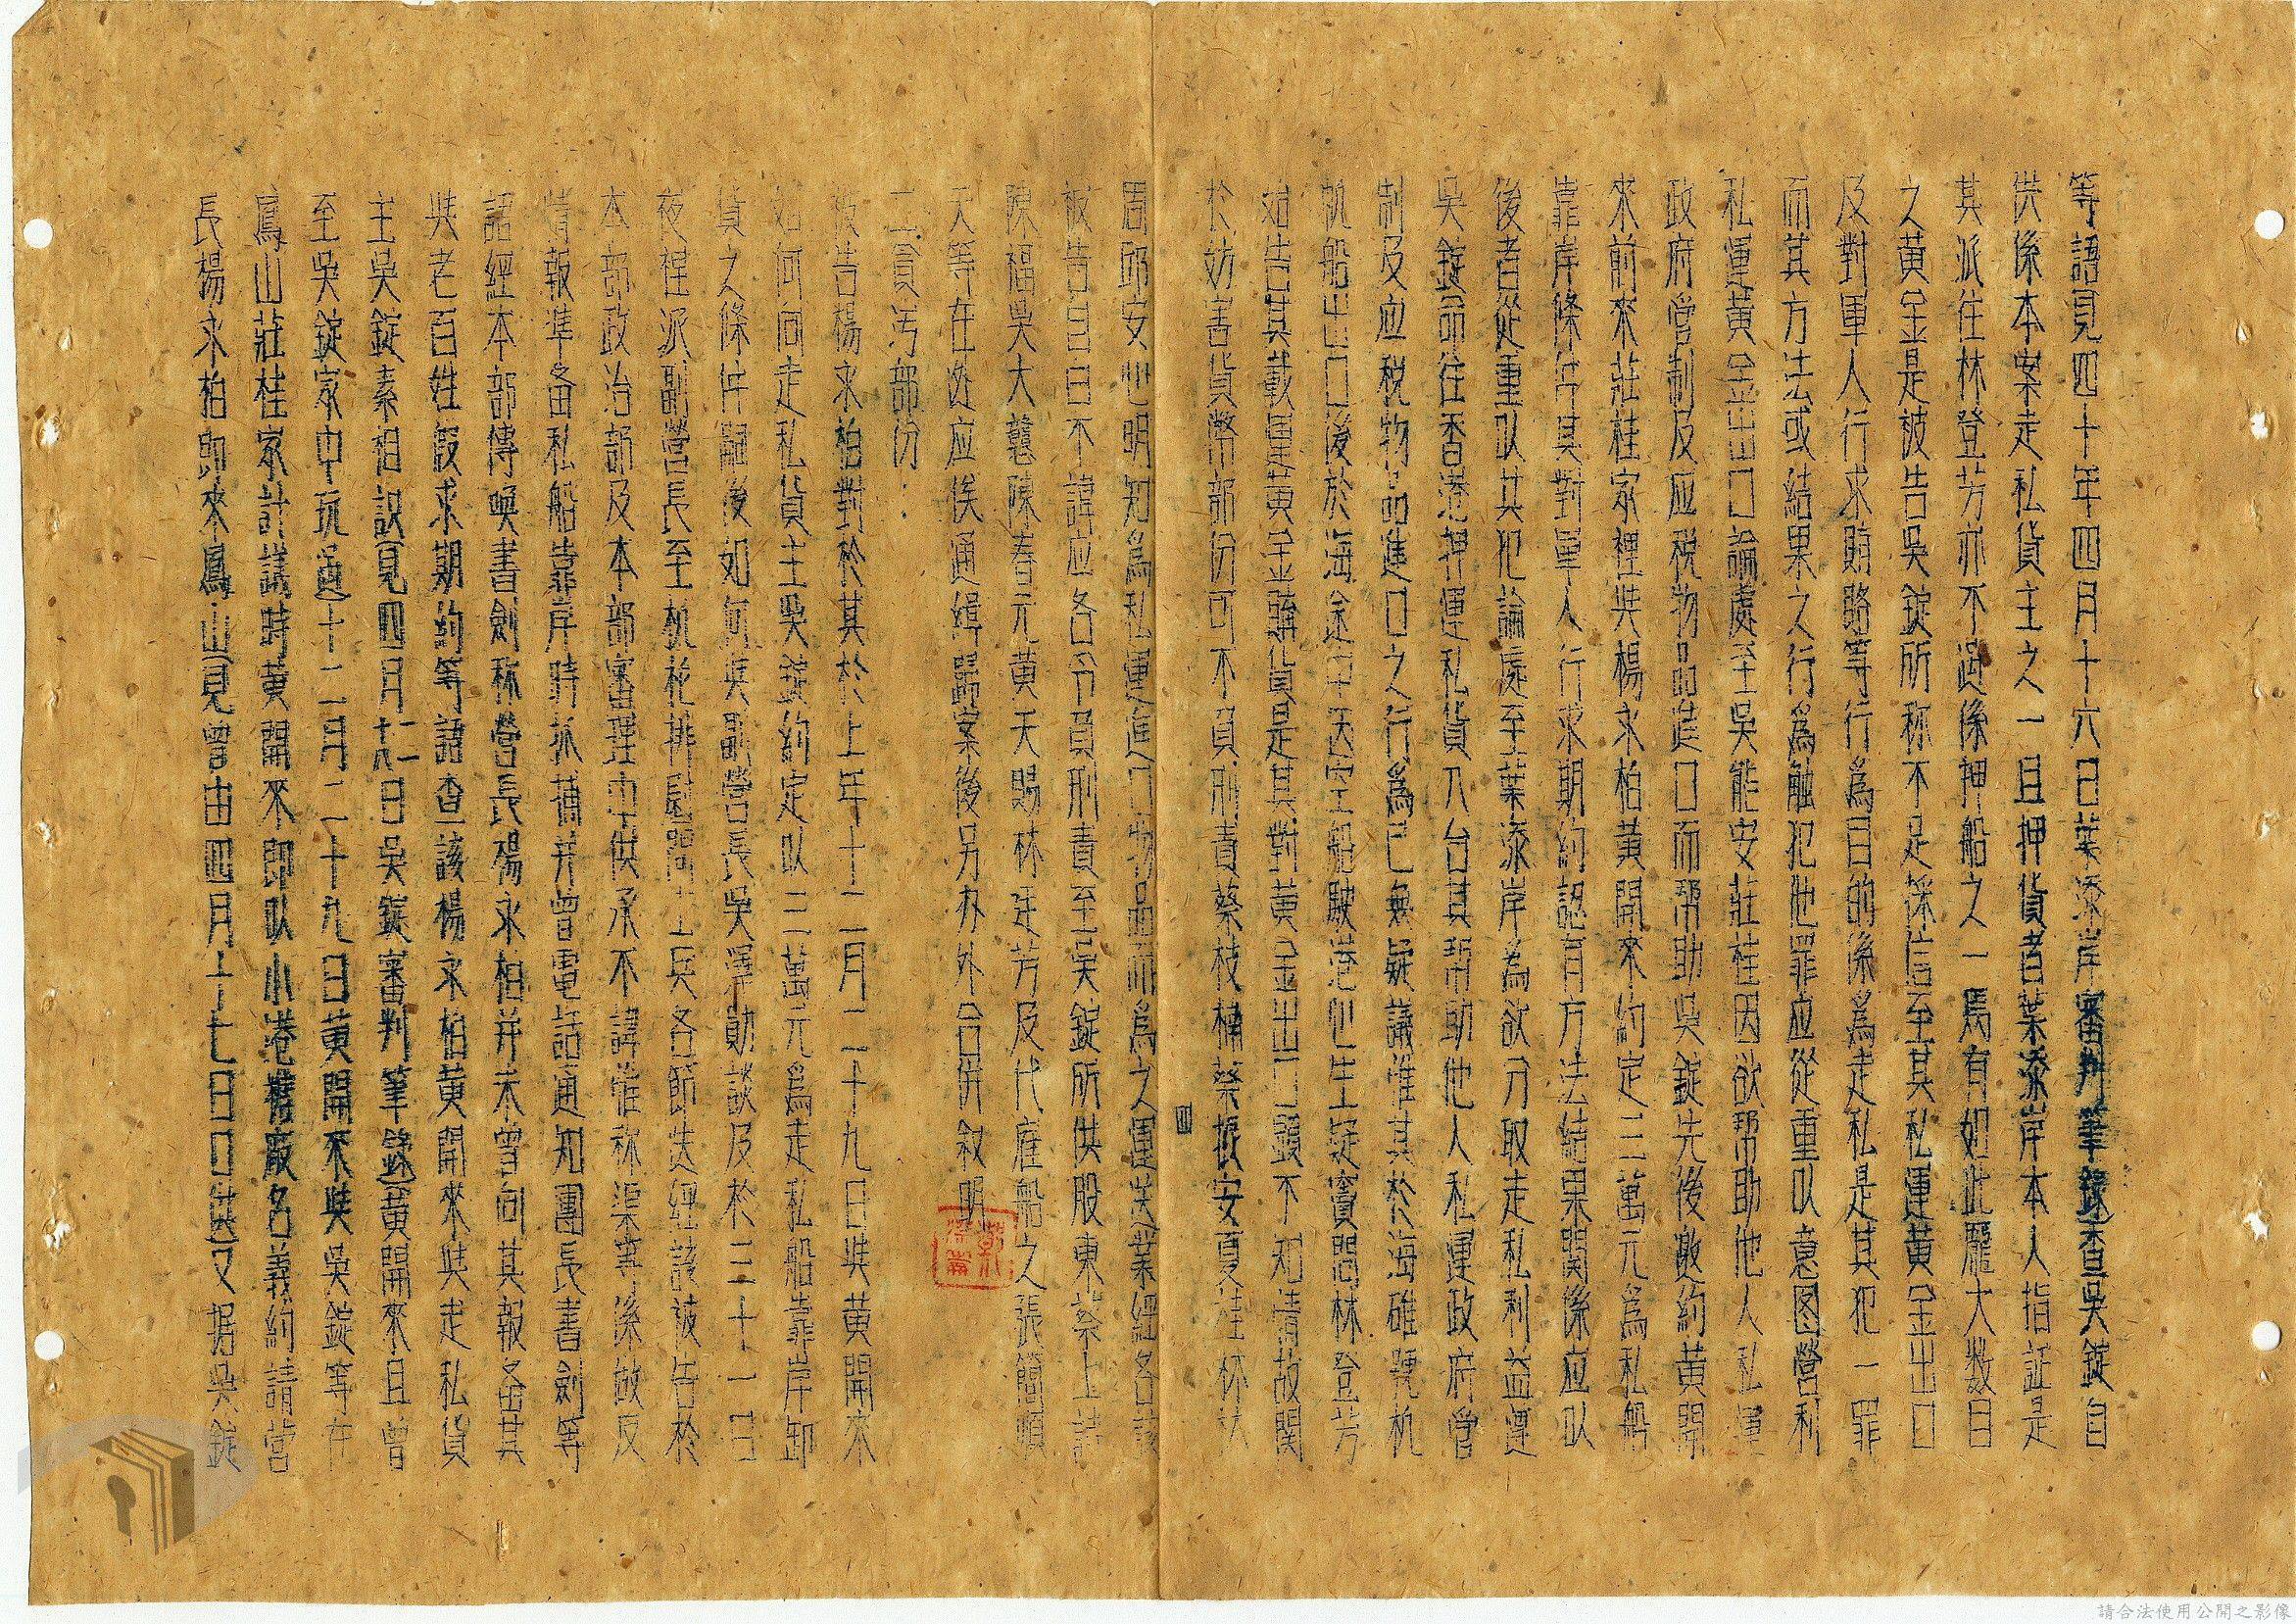 等語(見四十年四月十六日葉添岸審判筆錄)查吳錠自
供係本案走私貨主之一且押貨者葉添岸本人指証是
其派往林登芳亦不過係押船之一焉有如此龐大数目
之黄金是被告吳錠所称不足採信至其私運黄金出口
及對軍人行求賄賂等行為目的係為走私是其犯一罪
而其方法或結果之行為触犯他罪应從重以意图營利
私運黄金出口論處至吳能安莊桂因欲帮助他人私運
政府管制及应稅物品進口而帮助吳錠先後邀約黄開
來前來莊桂家裡與楊永柏黄開來約定三萬元為私船
靠岸條件其對軍人行求期約認有方法結果関係应以
後者從重以共犯論處至葉添岸為欲分取走私利益運
吳錠命往香港押運私貨入台其帮助他人私運政府管
制及应稅物品進口之行為已無疑議惟其於海碓號机
帆船出口後於海途中因空船駛港心生疑竇問林登芳
始告其載運黄金購貨是其對黄金出口顯不知情故関
於妨害貨幣部份可不負刑責蔡枝楠蔡振安夏桂林林
四
周邱安也明知為私運進口物品而為之運送業經各該
被告自白不諱应各令負刑責至吳錠所供股東蔡上詩
陳福吳大戇陳春元黄天賜林廷芳及代雇船之張簡順
天等在逃应俟通緝歸案後另办外合併叙明
二、貪污部份：
被告楊永柏對於其於上年十二月二十九日與黄開來
如何向走私貨主吳錠約定以三萬元為走私船靠岸卸
貨之條件嗣後如何與副營長吳澤勛談及於三十一日
夜裡派副營長至桃花排慰問士兵各節迭經該被告於
本部政治部及本部審理中供承不諱惟称渠等係做反
情報準备私船靠岸時抓捕并曾電話通知團長書劍等
語經本部傳喚書劍称營長楊永柏并未曾向其報备其
與老百姓假求期約等語查該楊永柏黄開來與走私貨
主吳錠素相識(見四月十八日吳錠審判筆錄)黄開來且曾
至吳錠家中玩過十二月二十九日黄開來與吳錠等在
鳳山莊桂家計議時黄開來即以小港糖廠名義約請營
長楊永柏即來鳳山(見曾由四月十七日口供)又据吳錠